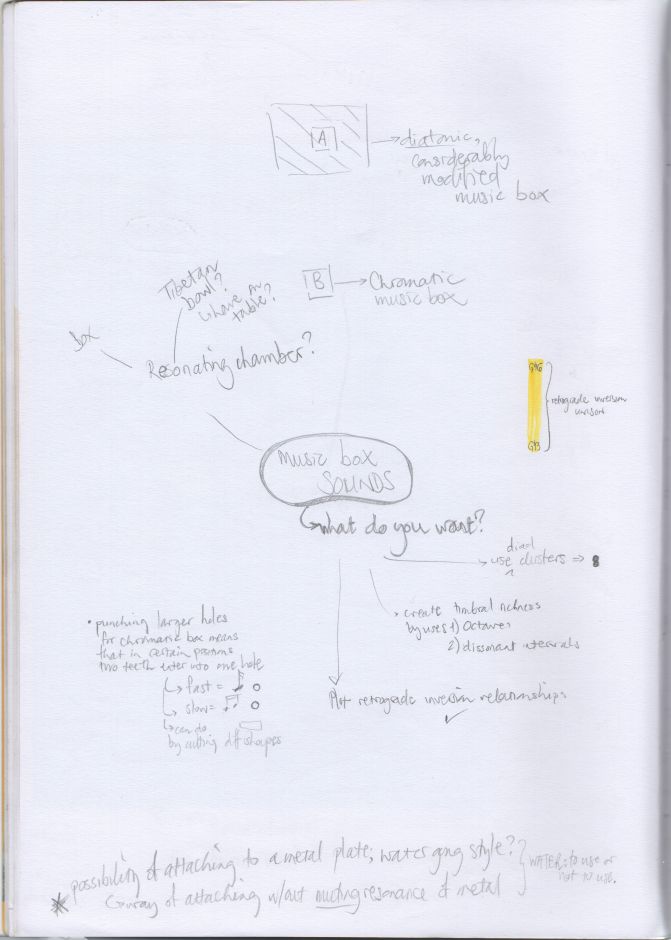 A
diatonic,
considerably
modified
music box
Tibetan
bowl?
table?
B
Chromatic
music box
box
Resonating chamber?
retrograde inversion
music box
SOUNDS
what do you want?
diad
use clusters ⇒
• punching larger holes
for chromatic box means
that in certain positions
two teeth enter into one hole
↳ fast =
↳ slow =
↳ can do
by cutting diff shapes
create timbral richness
by uses 1) Octaves
2) dissonant intervals
Plot retrograde inversion relationships
✓
possibility of attaching to a metal plate; water gong style?
* ↳ way of attaching w/out muting resonance of metal
WATER: to use or
not to use.